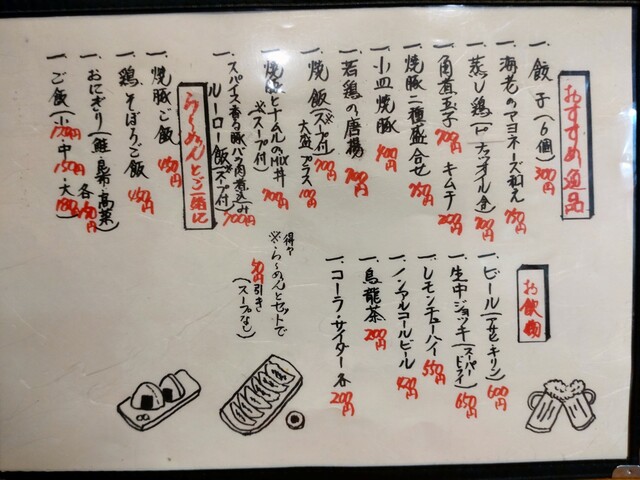 おすすめ逸品
一、餃子(6個) 300円
一、海老のマヨネーズ和え 750円
一、蒸し鶏(ピーナッツオイル含) 700円
一、角煮玉子 700円 キムチ 200円
一、焼豚二種盛合せ 750円
一、小皿焼豚 400円
一、若鶏の唐揚 700円
一、焼飯(スープ付) 700円
大盛プラス 100円
一、焼豚とナムルのMIX丼 700円
※(スープ付)
一、スパイス香る豚バラ肉煮込み
ルーロー飯(スープ付) 700円
得々
※らーめんとセットで
50円引き
(スープなし)
らーめんとご一緒に
一、焼豚ご飯 450円
一、鶏そぼろご飯 450円
一、おにぎり(鮭・昆布・高菜) 各150円
一、ご飯(小120円・中150円・大180円)
お飲物
一、ビール(アサヒ・キリン) 600円
一、生中ジョッキ(スーパードライ) 650円
一、レモンチューハイ 550円
一、ノンアルコールビール 420円
一、烏龍茶 200円
一、コーラ・サイダー 各200円